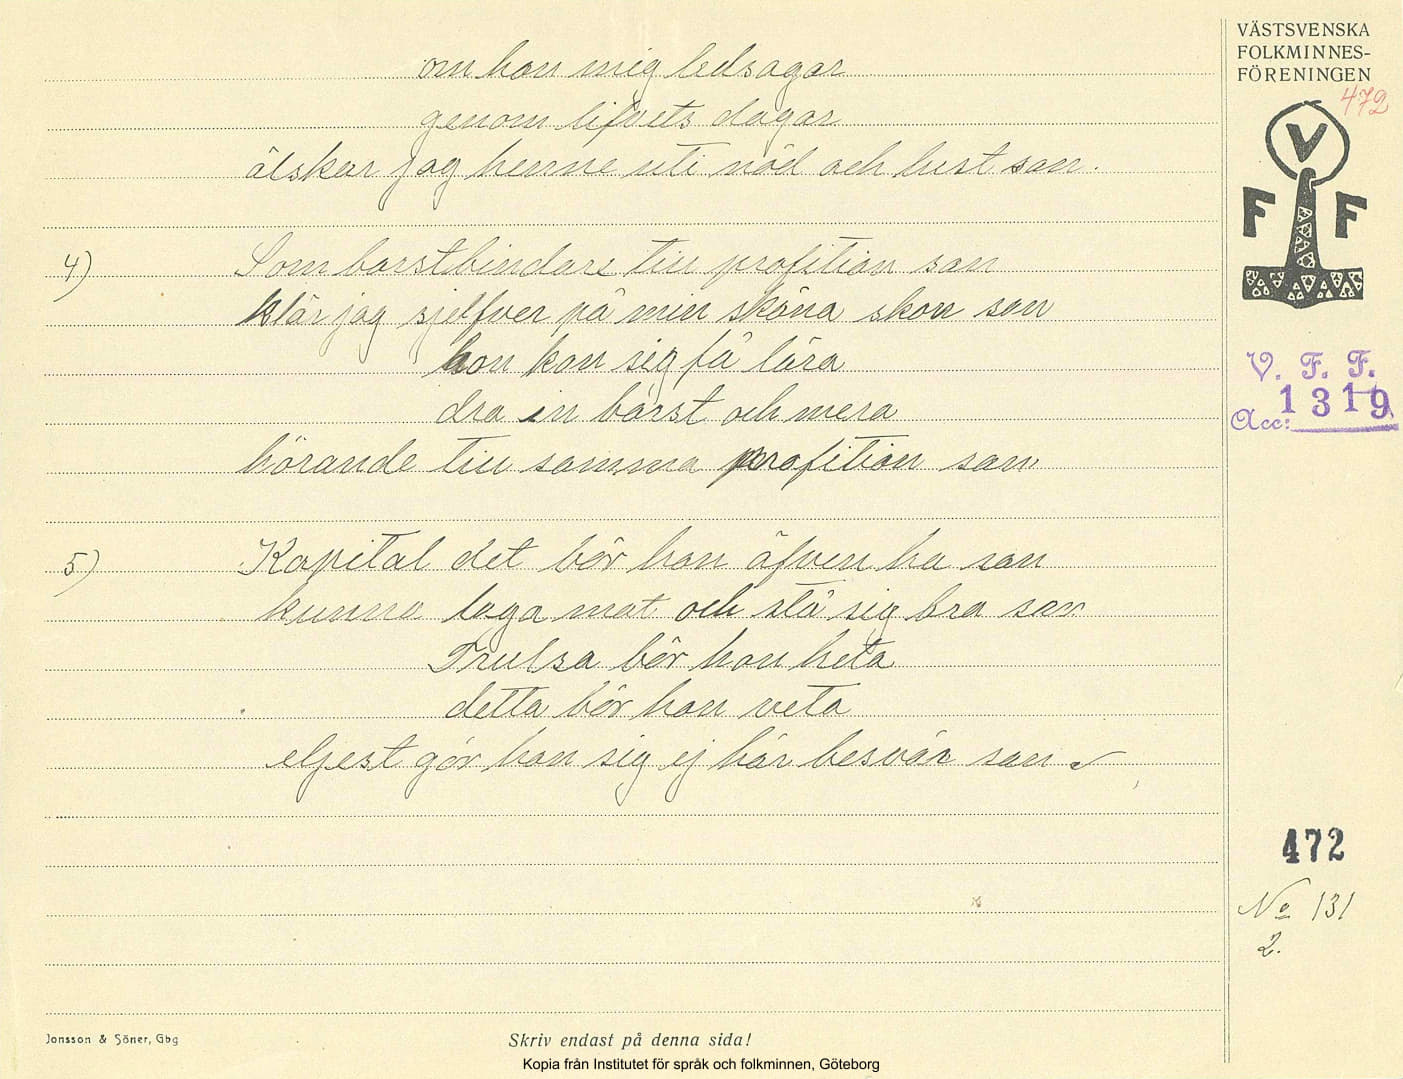 om hon mig ledsagar
genom lifvets dagar
älskar jag henne uti nöd och lust san.
4) Som borstbindare till profition san
klär jag sjelfver på min sköna skon san
hon kan sig få lära
dra in borst och mera
hörande till samma profition san
5) Kapital det bör hon äfven ha san
kunna laga mat och stå sig bra san
Trulsa bör hon heta
detta bör hon veta
eljest gör hon sig ej här besvär san
VÄSTSVENSKA
FOLKMINNES-
FÖRENINGEN
472
V
F F
V. F. F.
Acc: 1319
472
No 131
2.
Jonsson & Söner, Gbg
Skriv endast på denna sida!
Kopia från Institutet för språk och folkminnen, Göteborg